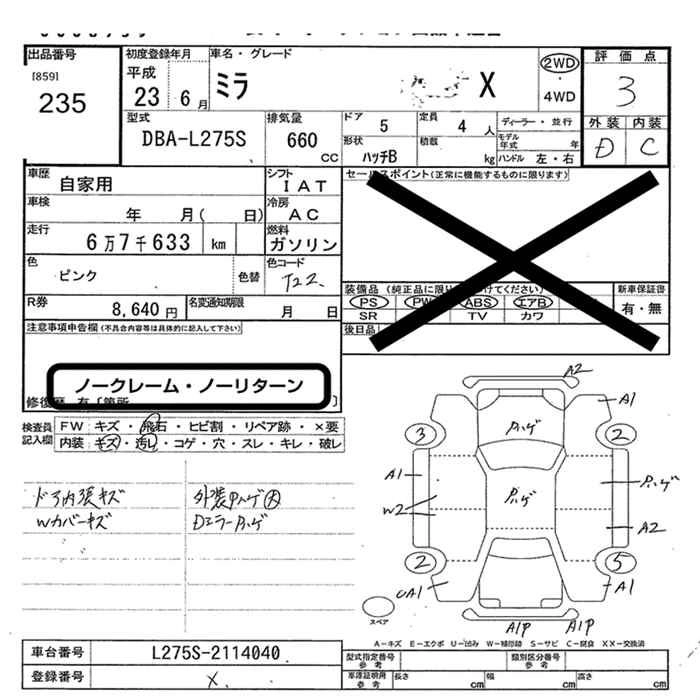 出品番号
[859]
235
初度登録年月
平成
23 6 月
車名・グレード
ミラ X
2WD
・
4WD
評価点
3
外装 内装
D C
型式
DBA-L275S
排気量
660
CC
ドア 5
定員 4 人
形状 ハッチB
積載 kg
ディーラー・並行
モデル年式 年
ハンドル 左・右
車歴 自家用
シフト IAT
車検 年 月( 日)
冷房 AC
走行 6万7千633 km
燃料 ガソリン
色 ピンク 色替
色コード T22
R券 8,640 円
名変通知期限 月 日
セールスポイント(正常に機能するものに限ります)
装備品 (純正品に限り けてください)
PS PW ABS エアB
SR TV カワ
新車保証書
有・無
後日品
注意事項申告欄 (不具合内容等は具体的に記入して下さい)
ノークレーム・ノーリターン
修復歴 有〔箇所 〕
検査員記入欄
FW キズ・飛石・ヒビ割・リペア跡・×要
内装 キズ・汚れ・コゲ・穴・スレ・キレ・破レ
ドア内張キズ 外装ハゲ大
Wカバーキズ Dミラーハゲ
A2
A1
ハゲ
3
2
A1
ハゲ
ハゲ
W2
A2
2
5
UA1
A1
A1P A1P
スペア
A-キズ E-エクボ U-凹み W-補修跡 S-サビ C-腐食 XX-交換済
車台番号 L275S-2114040
登録番号 X
型式指定番号 参考
類別区分番号 参考
車庫証明用 参考
長さ cm
幅 cm
高さ cm